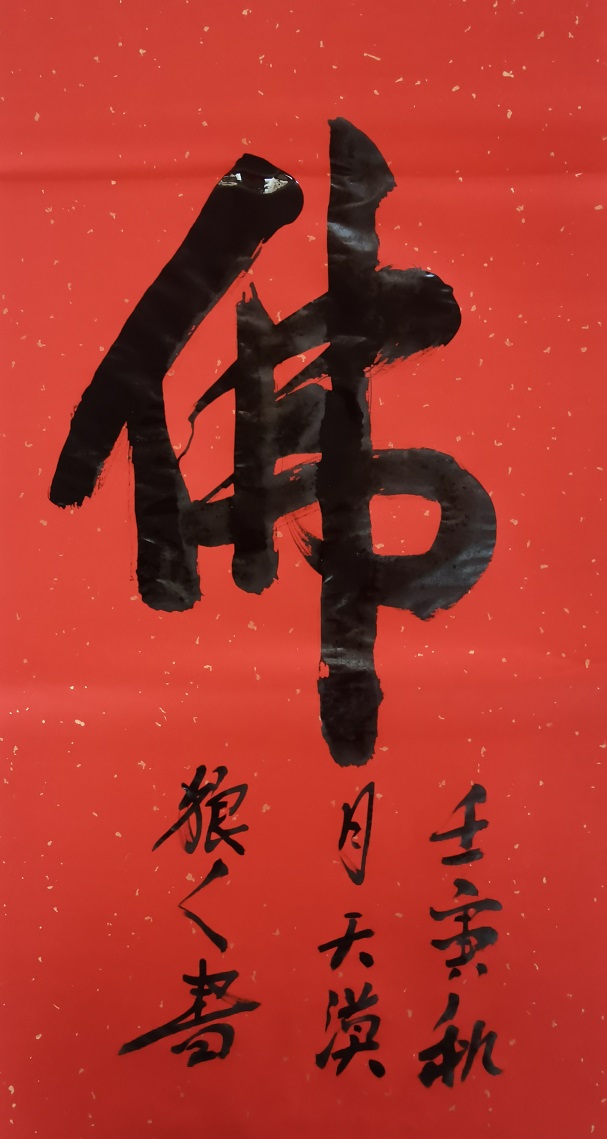 佛
壬寅秋
月天漠
狼人書